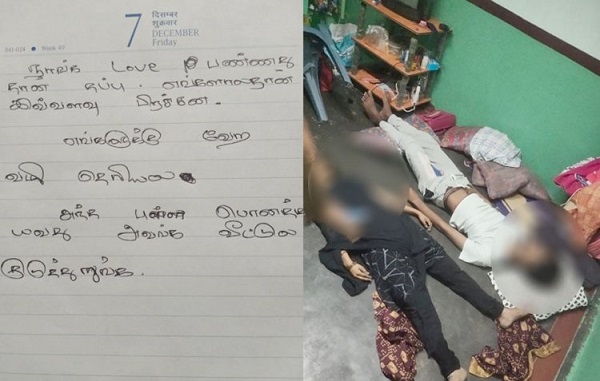 7 दिसम्बर
शुक्रवार
DECEMBER
Friday
341-024 • Week 49
நாங்க Love பண்ணது
தான் தப்பு. எங்களாலதான்
இவ்வளவு
எங்களுக்கு வேற
வழி தெரியல
அந்த புள்ள பொணத்த
யவது அவங்க வீட்டுல
குடுத்துறுங்க.